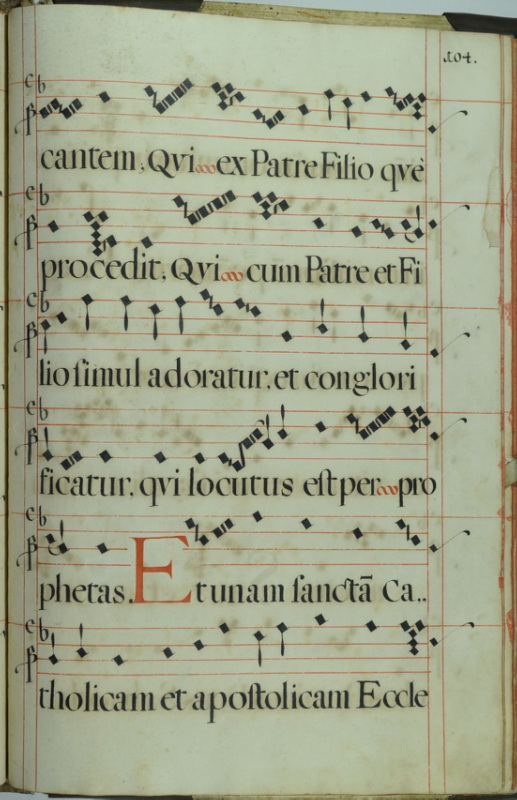 104.
cantem; Qvi ex Patre Filio qvè
procedit; Qvi cum Patre et Fi
lio ſimul adoratur, et conglori
ficatur, qvi locutus eſt per pro
phetas. Et unam ſanctā Ca..
tholicam et apoſtolicam Eccle